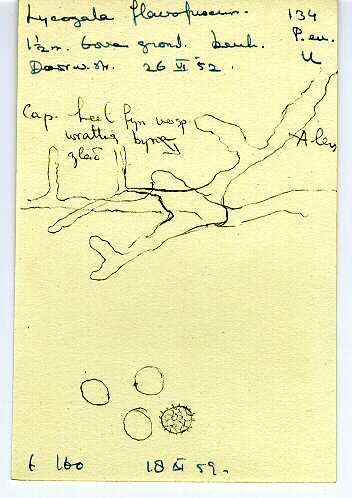 Lycogala flavofuscum. 134
1½ m. boven grond. beuk. P. eu.
U
26 VI 52.
Cap. heel fyn wesp.
wrattig byna
glad
A
6 160 18 XI 59.